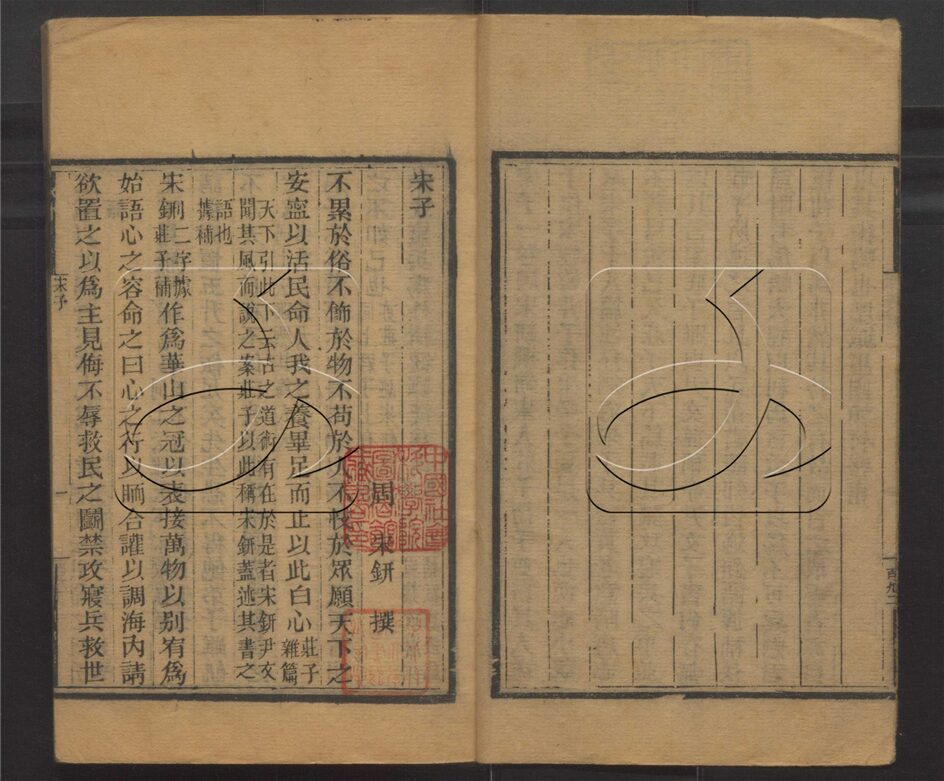 宋子
周 宋鈃 撰
不累於俗不飾於物不苟於人不忮於眾願天下之
安寧以活民命人我之養畢足而止以此白心莊子雜篇
天下引此下云古之道術有在於是者宋鈃尹文
聞其風而說之案莊子以此稱宋鈃蓋述其書之
語也
據補
宋鈃二字據莊子補作爲華山之冠以表接萬物以別宥爲
始語心之容命之曰心之行以聏合讙以調海內請
欲置之以爲主見侮不辱救民之鬭禁攻寢兵救世
宋子